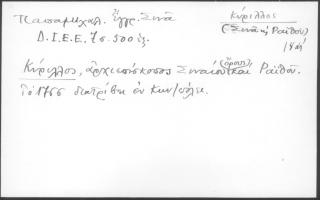 Παπαμιχαλ. Ἔγγρ. Σινᾶ
Δ.Ι.Ε.Ε. 7ος. 500 ἑξ.
Κύριλλος
(Σινᾶ ἢ Ραϊθοῦ)
18 αἰ
Κύριλλος, ἀρχιεπίσκοπος Σιναίου (ὄρους) καὶ Ραϊθοῦ.
Τὸ 1755 διατρίβει ἐν Κων/πόλει.